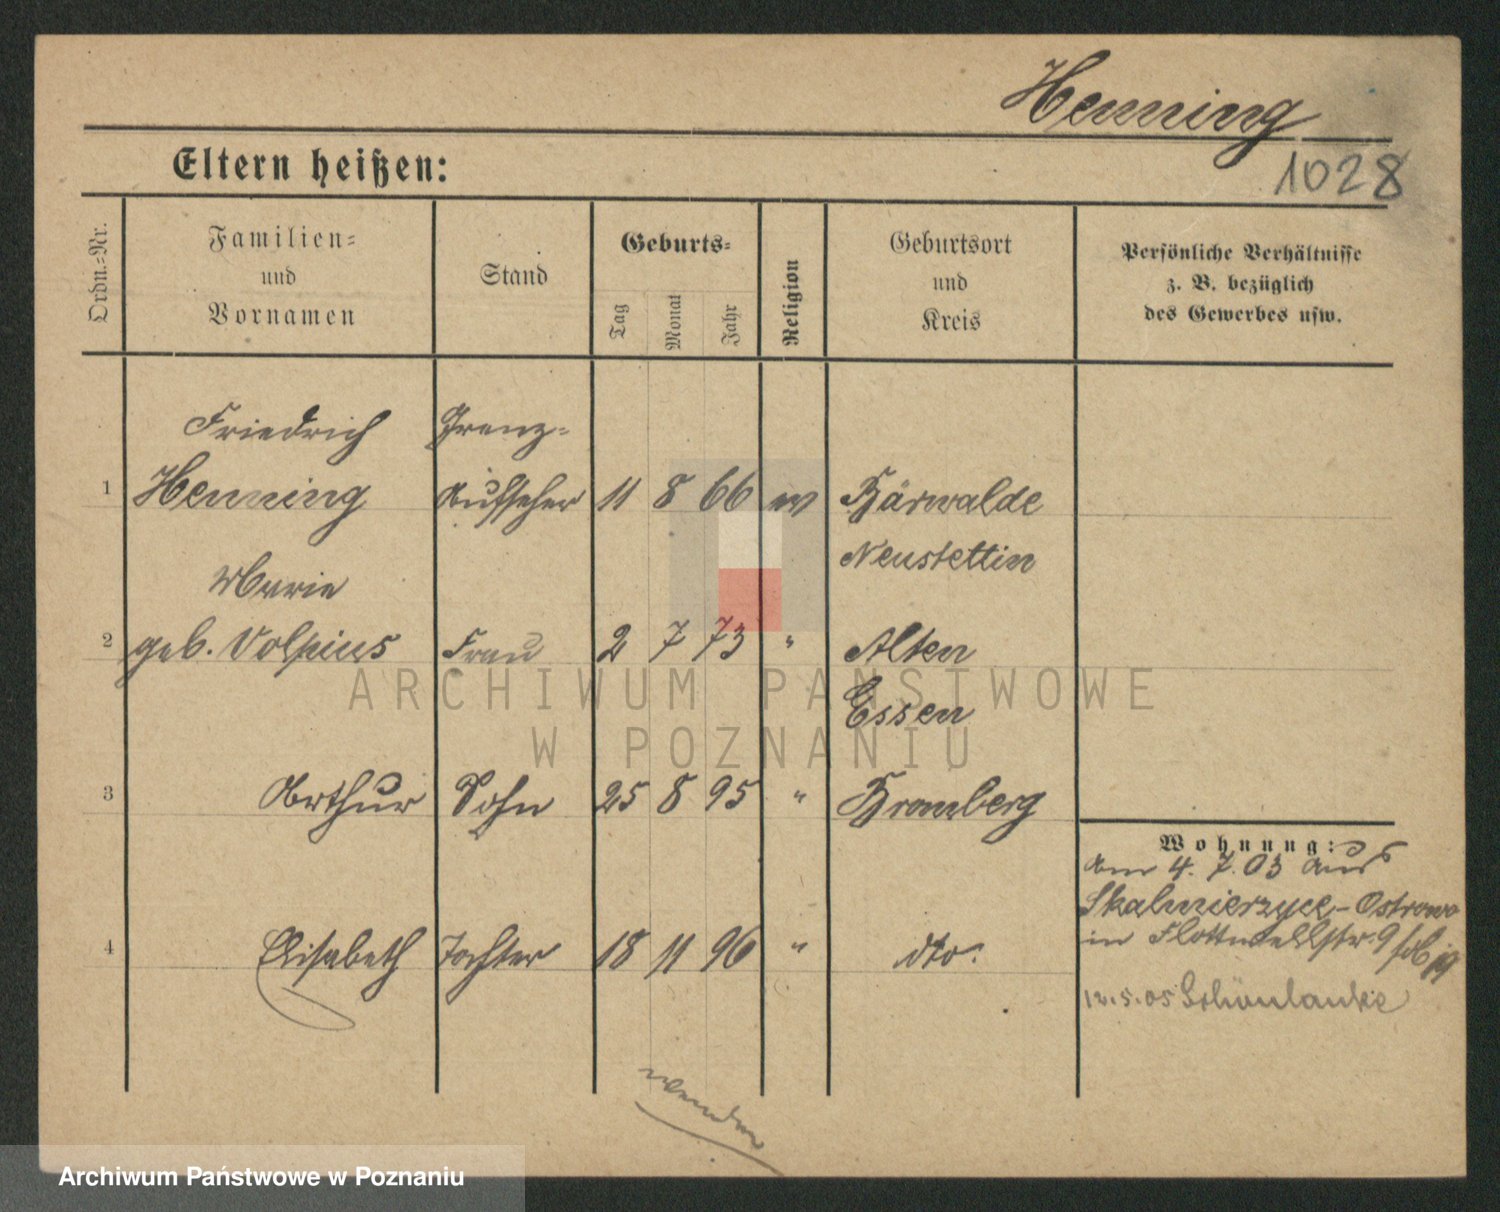 Henning
1028
Eltern heißen:
Ordn.=Nr.
Familien=
und
Vornamen
Stand
Geburts=
Tag
Monat
Jahr
Religion
Geburtsort
und
Kreis
Persönliche Verhältnisse
z. B. bezüglich
des Gewerbes usw.
Friedrich Grenz=
1 Henning Aufseher 11 8 66 ev Bärwalde
Neustettin
Marie
2 geb. Volpius Frau 2 7 73 " Alten
Essen
3 Arthur Sohn 25 8 95 " Bromberg
Wohnung:
am 4. 7. 03 aus
Skalmierzyce-Ostrowo
in Flottwellstr. 9
4 Elisabeth Tochter 18 11 96 " dto.
12.5.05 Schönlanke
wenden
ARCHIWUM PAŃSTWOWE
W POZNANIU
Archiwum Państwowe w Poznaniu